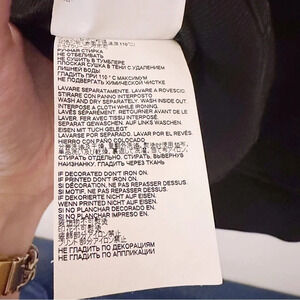 РУЧНАЯ СТИРКА
НЕ ОТБЕЛИВАТЬ
НЕ СУШИТЬ В ТУМБЛЕРЕ
ПЛОСКАЯ СУШКА В ТЕНИ С УДАЛЕНИЕМ
ЛИШНЕЙ ВОДЫ
ГЛАДИТЬ ПРИ 110° С МАКСИМУМ
НЕ ПОДВЕРГАТЬ ХИМИЧЕСКОЙ ЧИСТКЕ
LAVARE SEPARATAMENTE. LAVARE A ROVESCIO.
STIRARE CON PANNO INTERPOSTO
WASH AND DRY SEPARATELY. WASH INSIDE OUT.
INTERPOSE A CLOTH WHILE IRONING.
LAVÉS SÉPARÉMENT. RETOURNER AVANT DE LE
LAVER. FER AVEC TISSU INTERPOSÉ.
SEPARAT GEWASCHEN. AUF LINKS WASCHEN.
EISEN MIT TUCH GELEGT
LAVARSE POR SEPARADO. LAVAR POR EL REVÉS.
HIERRO CON PAÑO COLOCADO
СТИРАТЬ ОТДЕЛЬНО. СТИРАТЬ, ВЫВЕРНУВ
НАИЗНАНКУ. ГЛАДИТЬ ЧЕРЕЗ ТКАНЬ
IF DECORATED DON'T IRON ON.
IF PRINTED DON'T IRON ON.
SI DÉCORATION, NE PAS REPASSER DESSUS.
SI MOTIF, NE PAS REPASSER DESSUS.
IF DEKORIERTE NICHT AUF EISEN.
WENN PRINTED NICHT AUF EISEN.
SI NO PLANCHAR DECORADO EN.
SI NO PLANCHAR IMPRESO EN.
НЕ ГЛАДИТЬ ПО ДЕКОРАЦИЯМ
НЕ ГЛАДИТЬ ПО АППЛИКАЦИИ